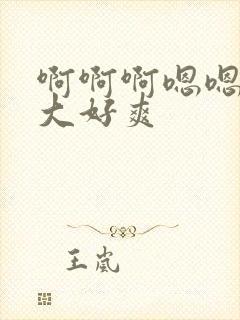 啊啊啊嗯嗯
大好爽
王岚